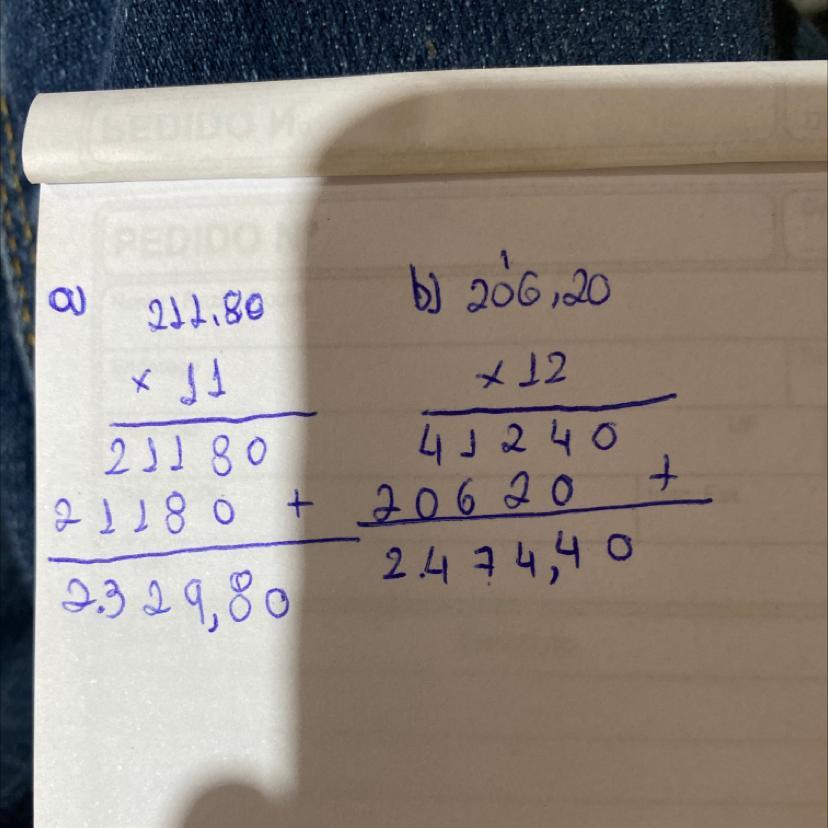 PEDIDO N
PEDIDO N
a) 211,80
× 11
21180
21180 +
2.329,80
b) 206,20
1
× 12
41240
20620 +
2.474,40